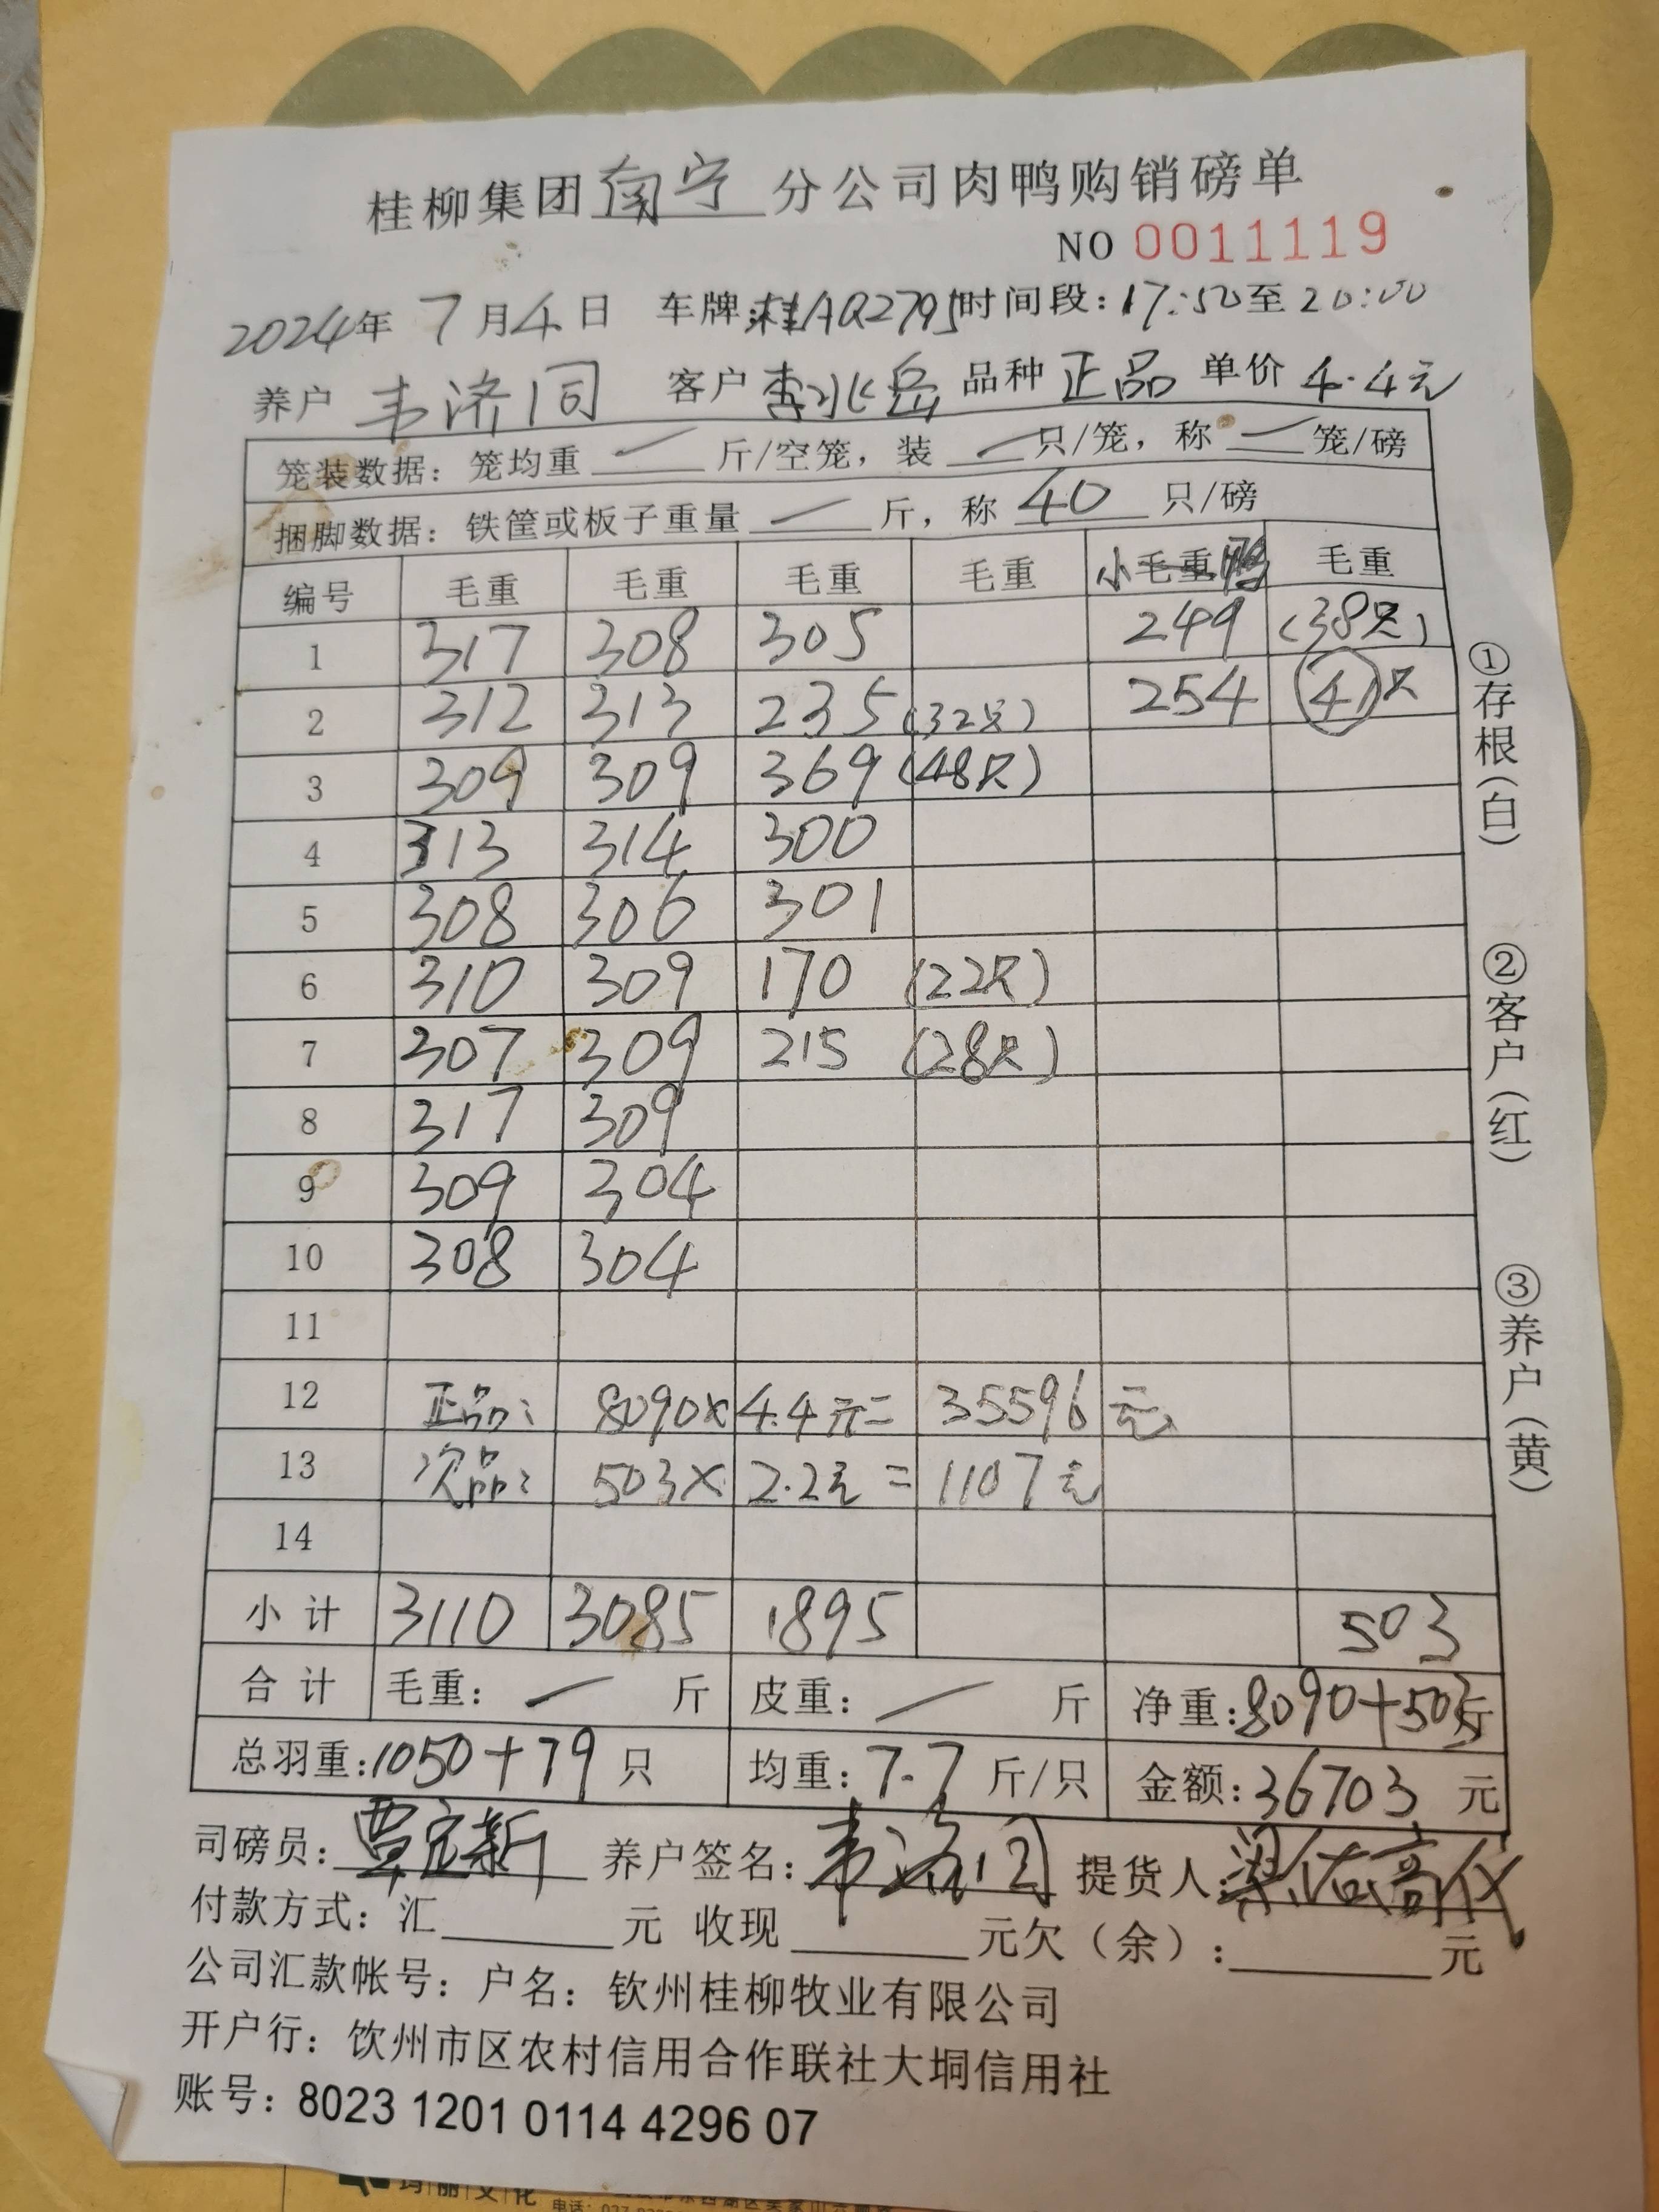 桂柳集团南宁分公司肉鸭购销磅单
NO 0011119
2024年 7月4日 车牌:桂AQ2795 时间段:17:50至20:00
养户 韦济同 客户 李兆岳 品种 正品 单价 4.4元
笼装数据：笼均重 — 斤/空笼，装 — 只/笼，称 — 笼/磅
捆脚数据：铁筐或板子重量 — 斤，称 40 只/磅
编号 毛重 毛重 毛重 毛重 小毛重鸭 毛重
1 317 308 305 249 (38只)
2 312 313 235 (32只) 254 41只
3 309 309 369 (48只)
4 313 314 300
5 308 306 301
6 310 309 170 (22只)
7 307 309 215 (28只)
8 317 309
9 309 304
10 308 304
11
12 正品: 8090×4.4元=35596元
13 次品: 503×2.2元=1107元
14
小计 3110 3085 1895 503
合计 毛重: — 斤 皮重: — 斤 净重:8090+503斤
总羽重:1050+79只 均重:7.7斤/只 金额:36703元
司磅员: 覃定新 养户签名: 韦济同 提货人:
付款方式：汇 元 收现 元欠（余）: 元
公司汇款帐号：户名：钦州桂柳牧业有限公司
开户行：饮州市区农村信用合作联社大垌信用社
账号：8023 1201 0114 4296 07
①存根(白)
②客户(红)
③养户(黄)